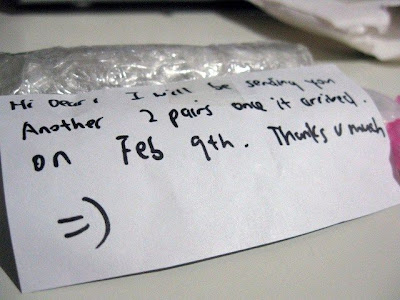 Hi Dear, I will be sending you
Another 2 pairs once it arrived.
on Feb 9th. Thanks v much
=)